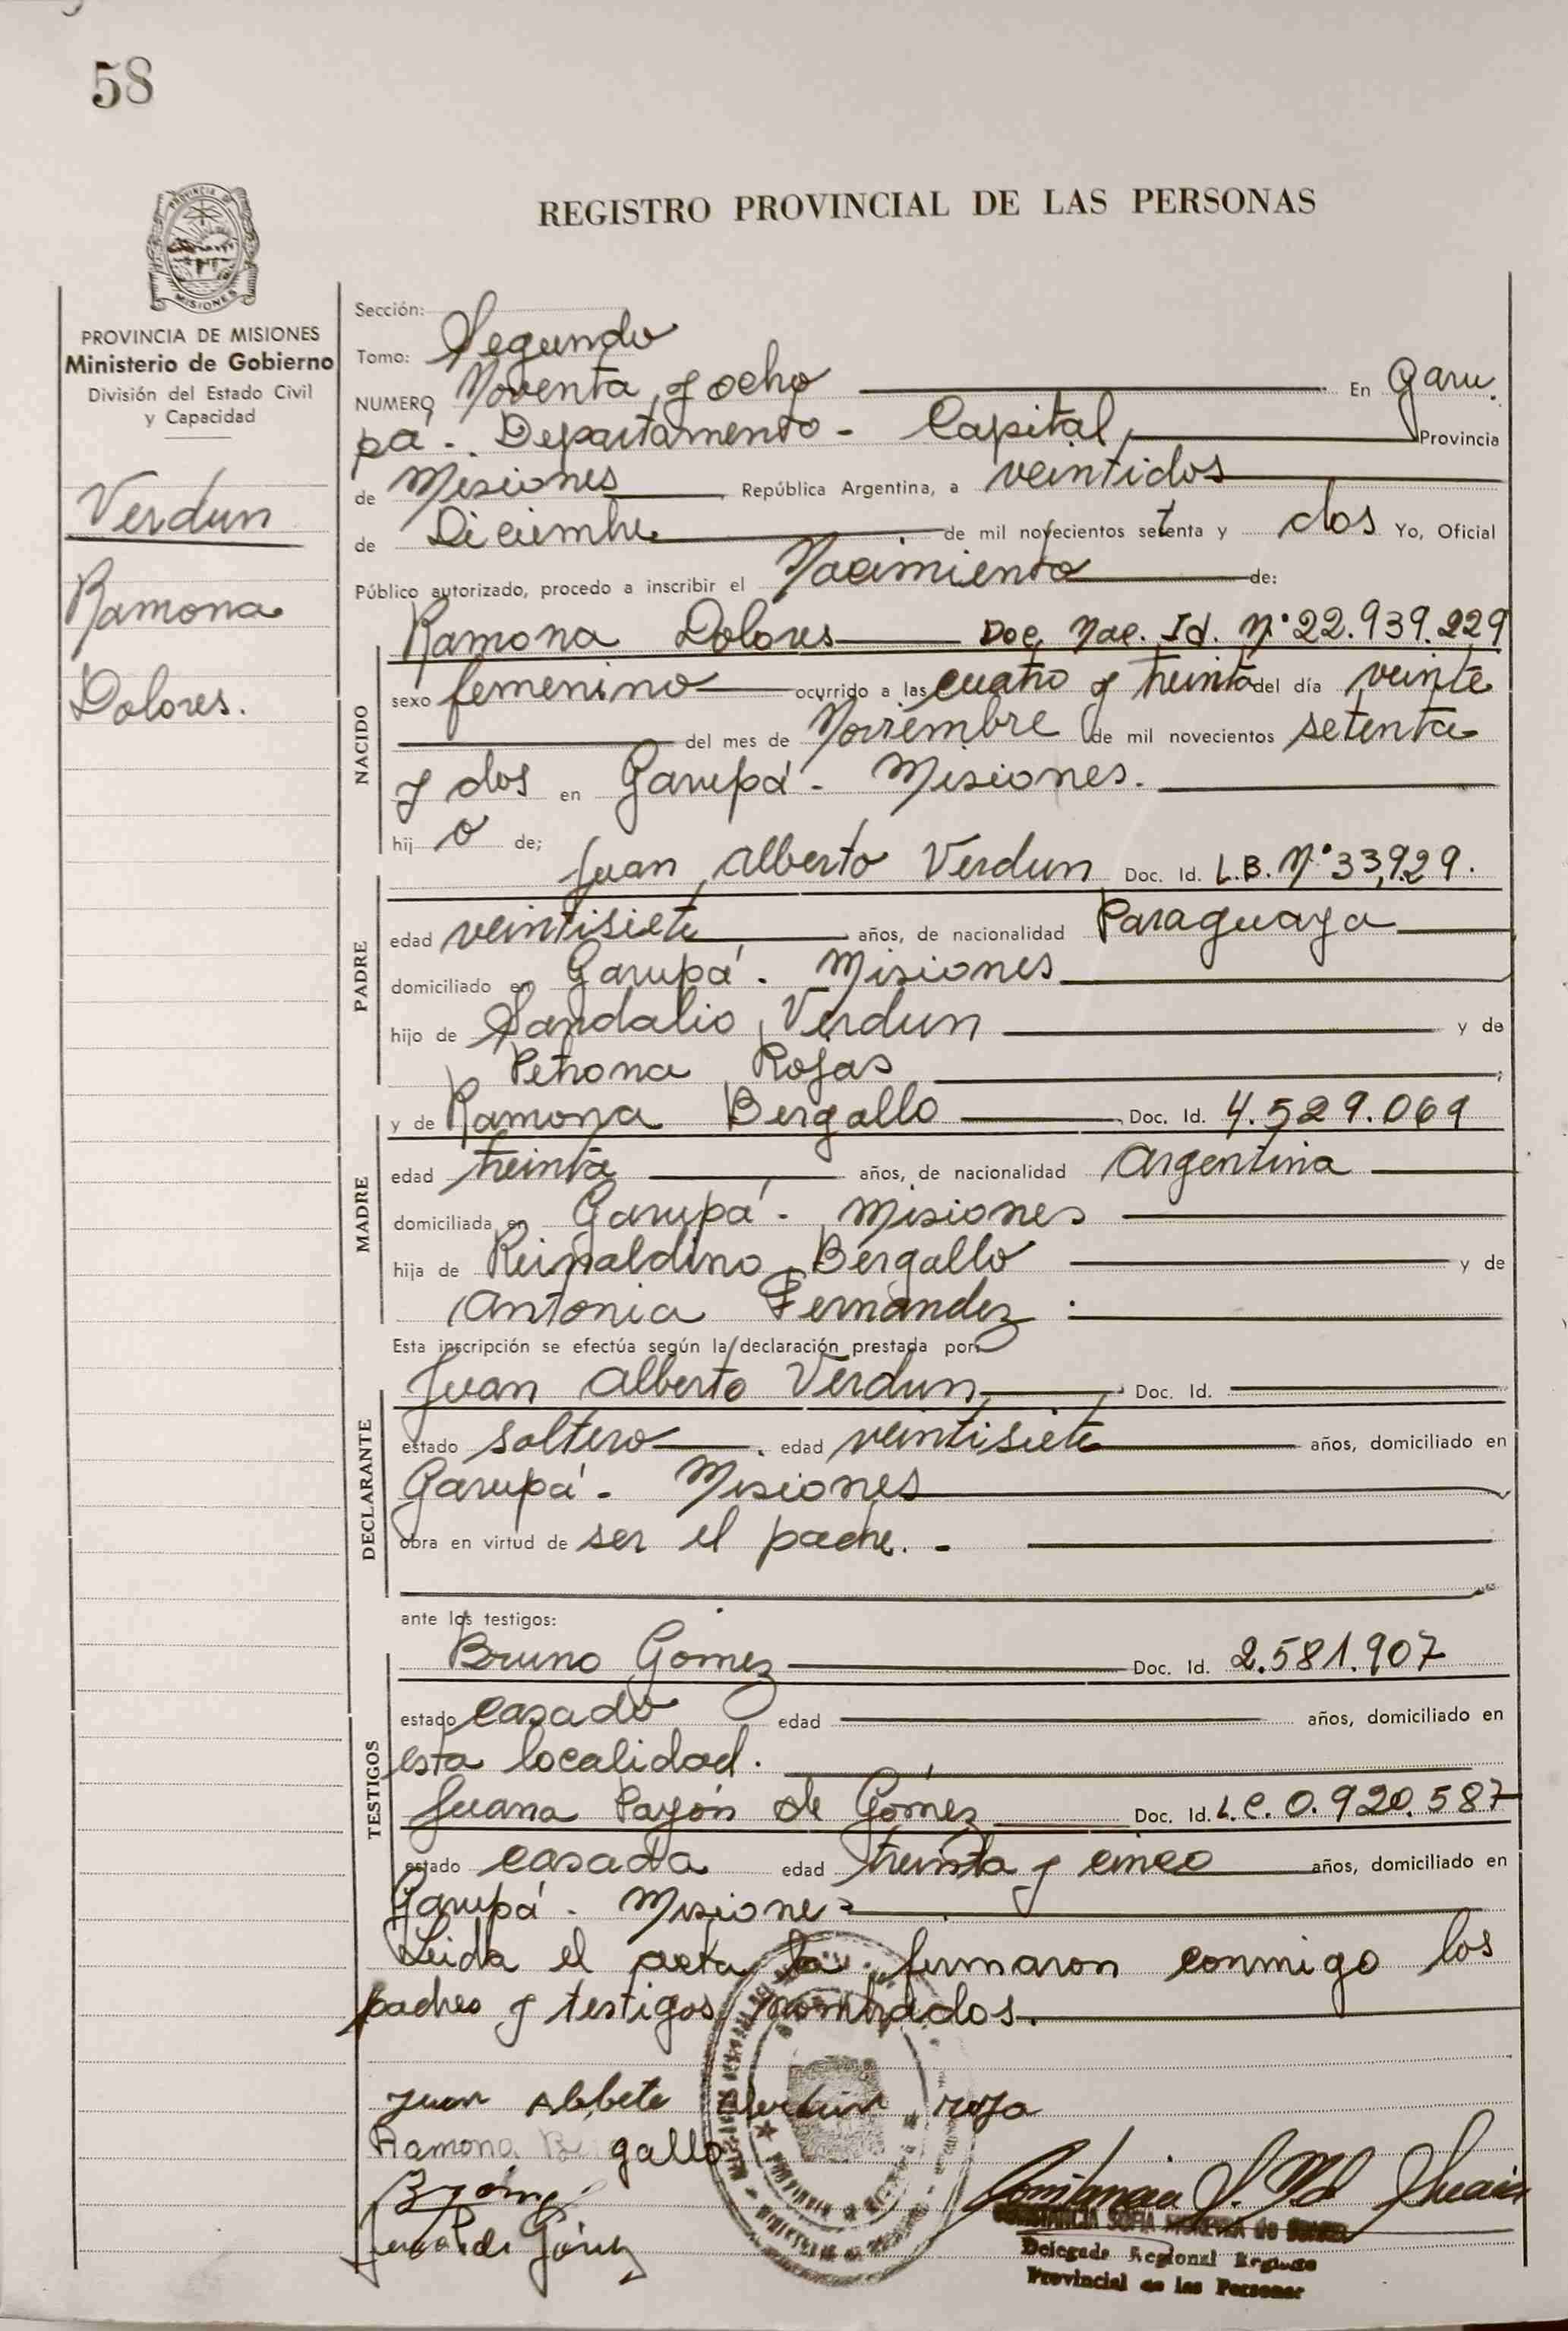 58
REGISTRO PROVINCIAL DE LAS PERSONAS
PROVINCIA DE
MISIONES
PROVINCIA DE MISIONES
Ministerio de Gobierno
División del Estado Civil
y Capacidad
Verdun
Ramona
Dolores.
Sección:
Tomo: Segundo
NUMERO Noventa y ocho En Garu
pá - Departamento - Capital, Provincia
de Misiones República Argentina, a veintidos
de Diciembre de mil novecientos setenta y dos Yo, Oficial
Público autorizado, procedo a inscribir el Nacimiento de:
NACIDO
Ramona Dolores Doc. Nac. Id. N° 22.939.229
sexo femenino ocurrido a las cuatro y treinta del día veinte
del mes de Noviembre de mil novecientos setenta
y dos en Garupá - Misiones.
hij o de;
PADRE
Juan Alberto Verdun Doc. Id. L.B. N° 33,929.
edad veintisiete años, de nacionalidad Paraguaya
domiciliado en Garupá - Misiones
hijo de Sandalio Verdun y de
Petrona Rojas ;
MADRE
y de Ramona Bergallo Doc. Id. 4.529.069
edad treinta años, de nacionalidad Argentina
domiciliada en Garupá - Misiones
hija de Reinaldino Bergallo y de
Antonia Fernandez.
Esta inscripción se efectúa según la declaración prestada por:
DECLARANTE
Juan Alberto Verdun Doc. Id.
estado soltero edad veintisiete años, domiciliado en
Garupá - Misiones
obra en virtud de ser el padre. -
ante los testigos:
TESTIGOS
Bruno Gómez Doc. Id. 2.581.907
estado casado edad años, domiciliado en
esta localidad.
Juana Payón de Gómez Doc. Id. L.C. 0.920.587
estado casada edad treinta y cinco años, domiciliado en
Garupá - Misiones
Leida el acta la firmaron conmigo los
padres y testigos nombrados.
Juan Albbeto Verdun roja
Ramona Be gallo
B gómez
Gómez
CONSTANCIA SOFIA MOREYRA de
Delegada Regional Registro
Provincial de las Personas